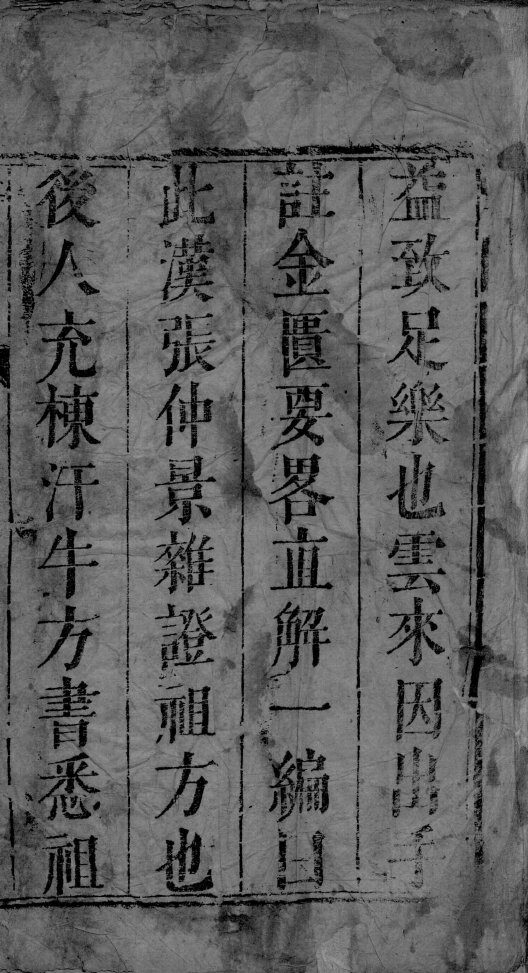 益致足樂也雲來因出手
註金匱要畧直解一編曰
此漢張仲景雜證祖方也
後人充棟汗牛方書悉祖